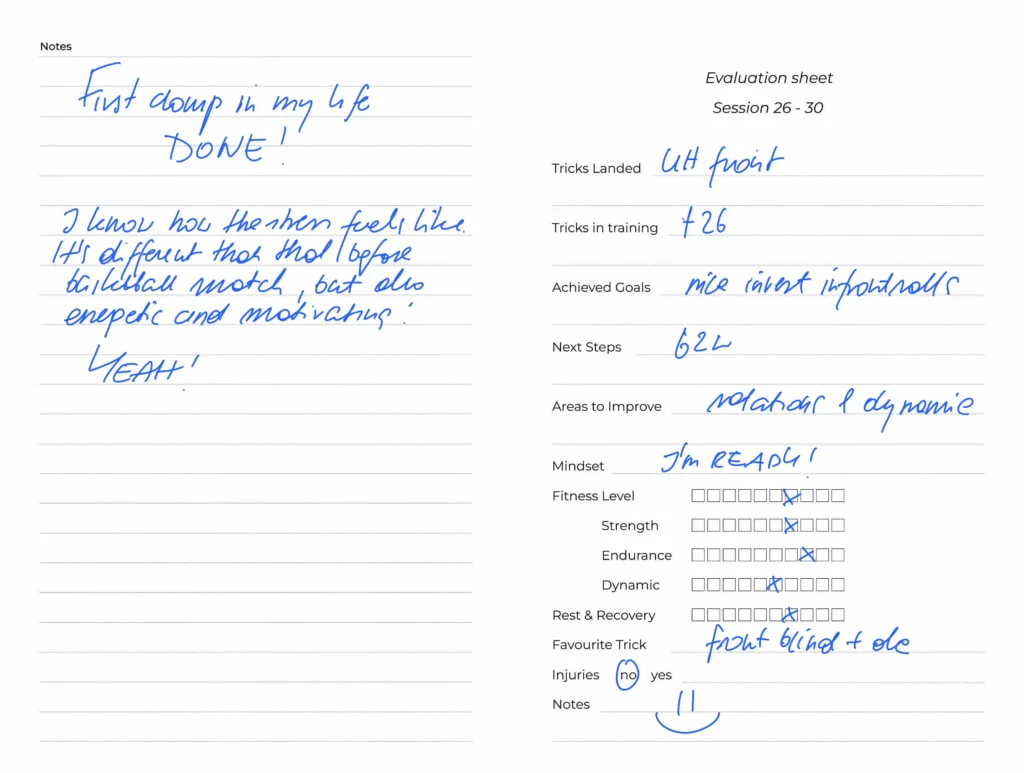 Notes
First comp in my life
DONE!
I know how the stress feels like.
It's different than that before
basketball match, but also
energetic and motivating!
YEAH!
Evaluation sheet
Session 26 - 30
Tricks Landed UH front
Tricks in training
Achieved Goals nice invert in frontrolls
Next Steps
Areas to Improve rotations & dynamic
Mindset I'm READY!
Fitness Level
Strength
Endurance
Dynamic
Rest & Recovery
Favourite Trick front blind + ole
Injuries no yes
Notes